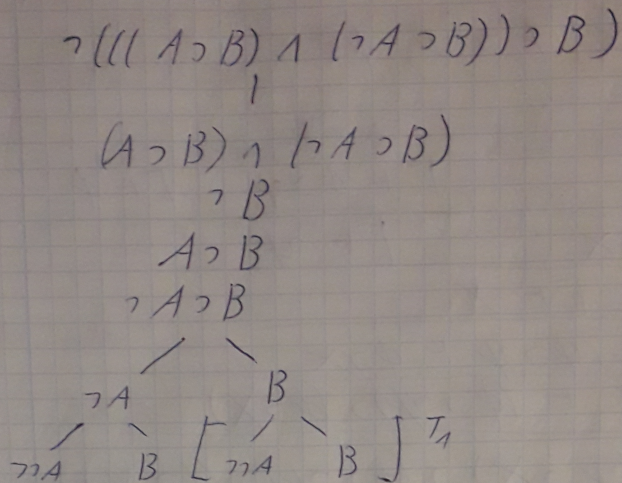 ¬(((A ⊃ B) ∧ (¬A ⊃ B)) ⊃ B)
(A ⊃ B) ∧ (¬A ⊃ B)
¬B
A ⊃ B
¬A ⊃ B
¬A B
¬¬A B [ ¬¬A B ] T₁